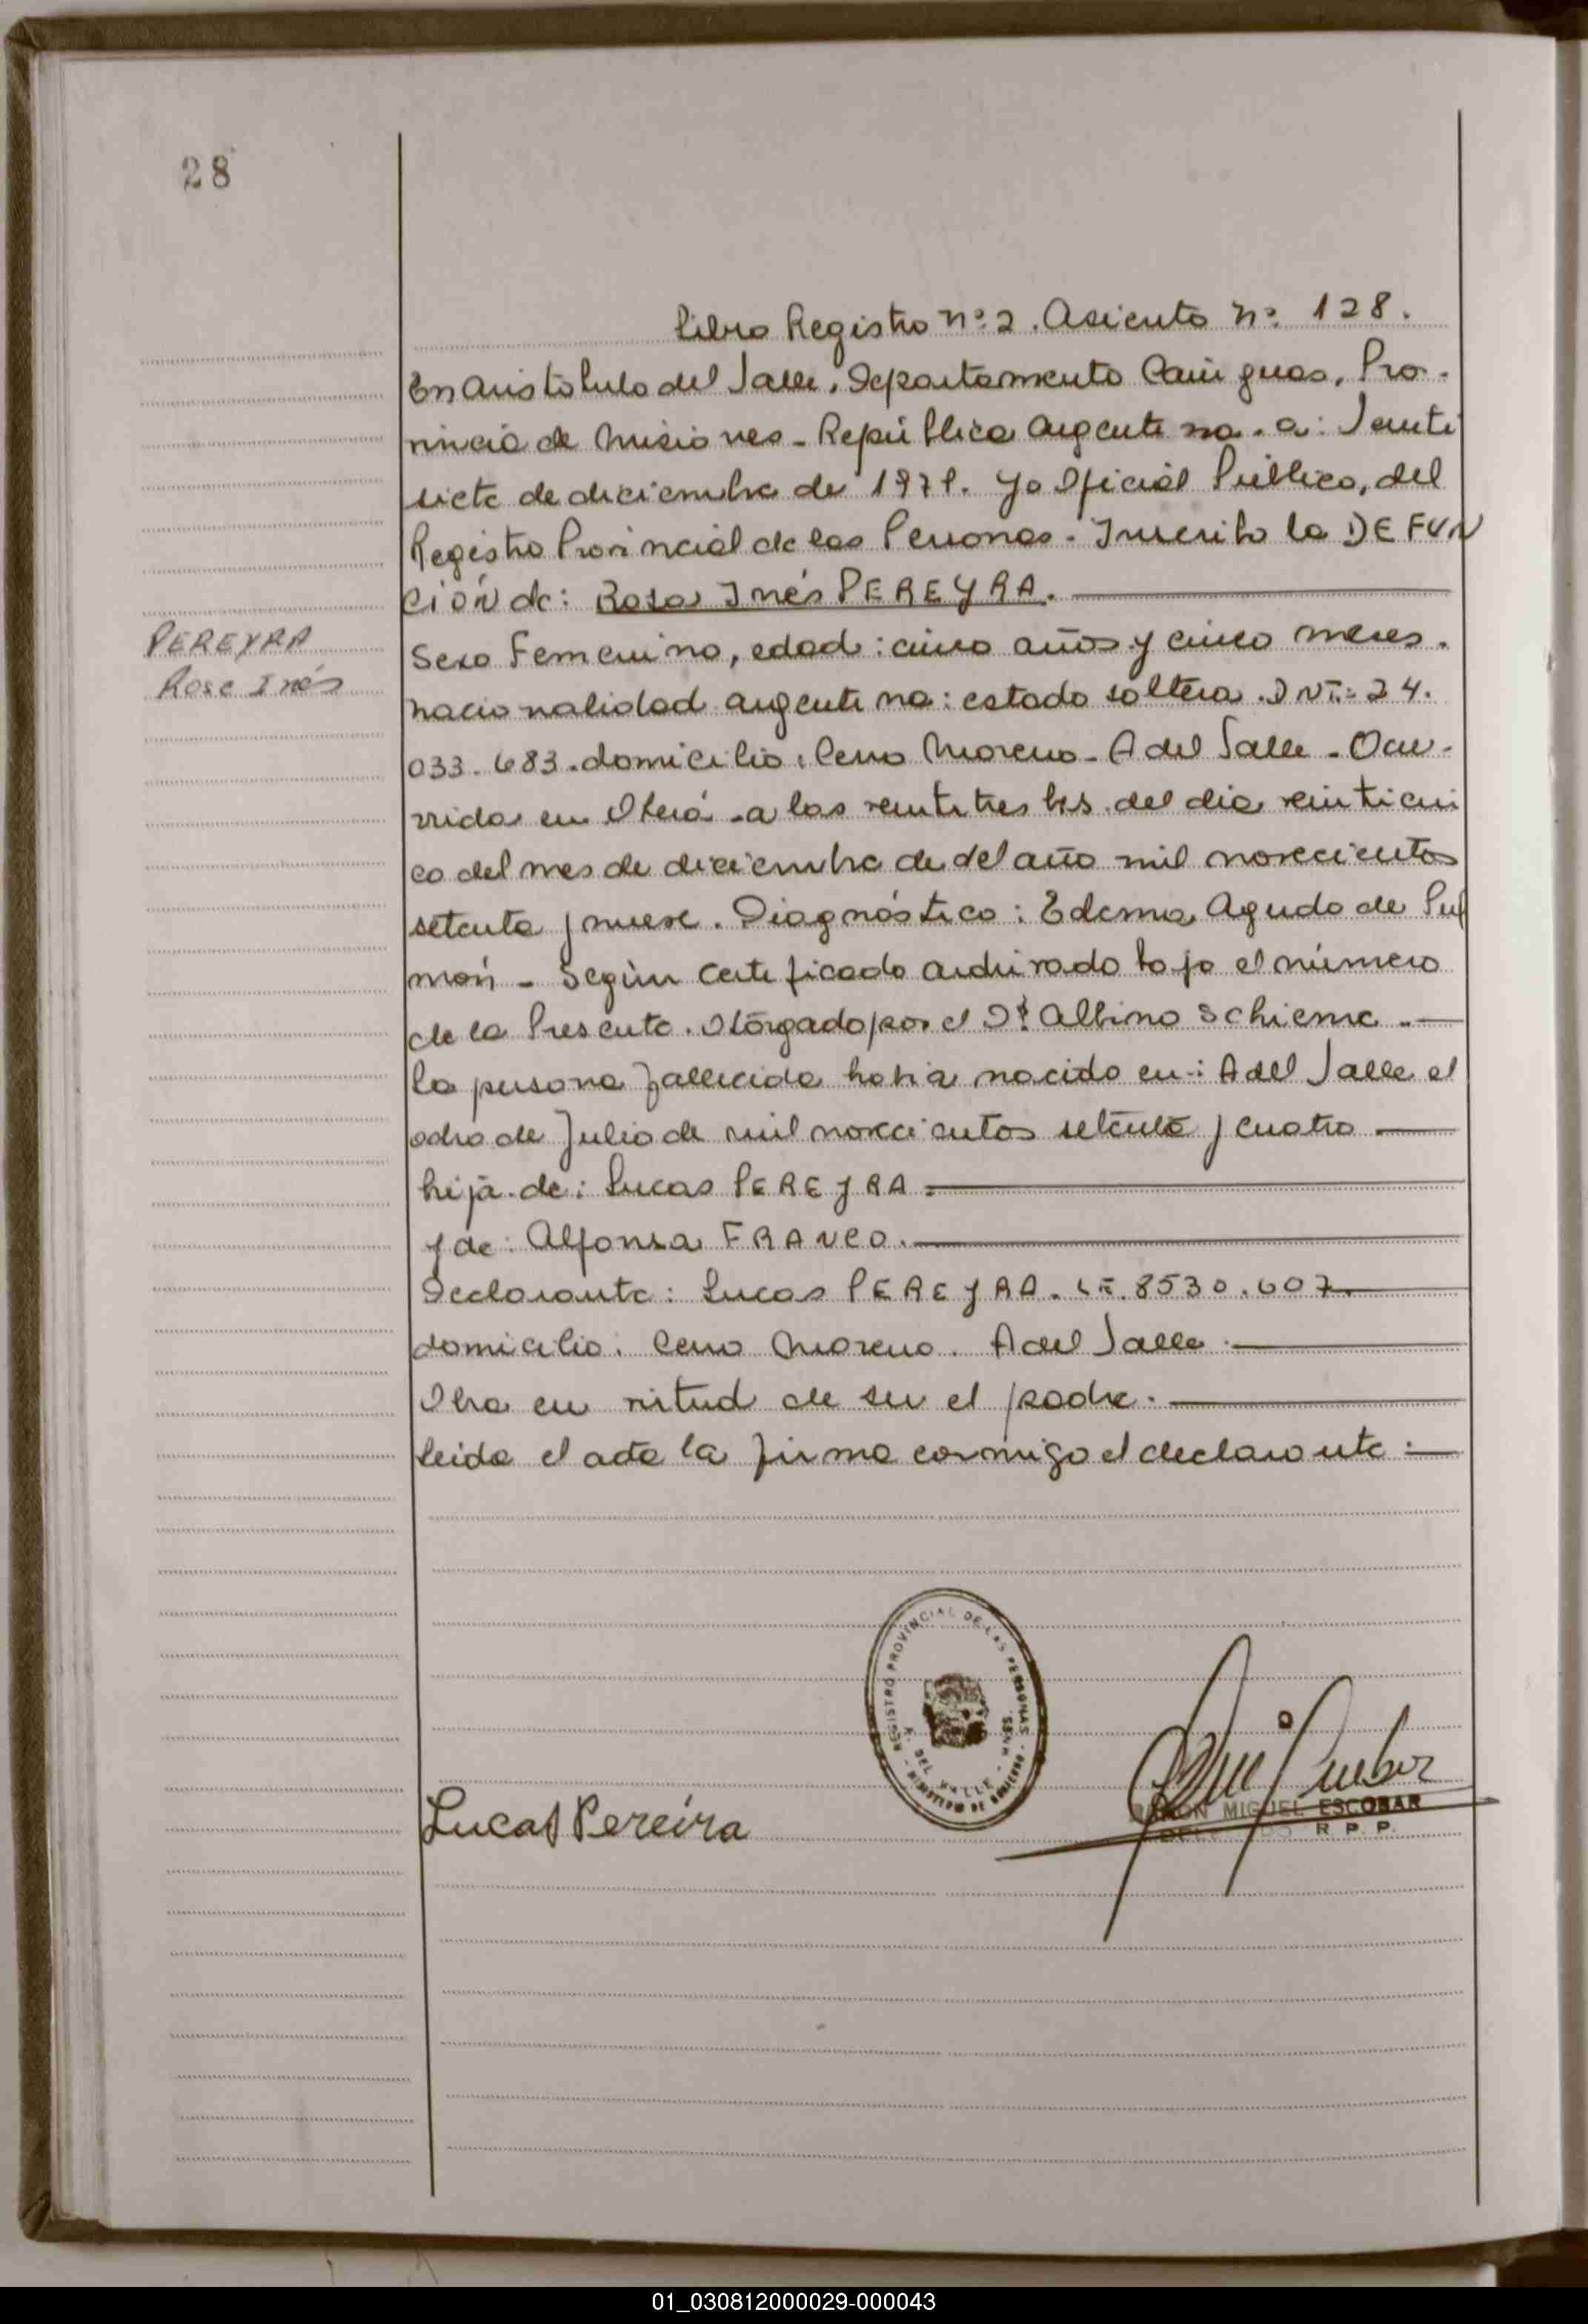 28
Libro Registro nº 2. Asiento nº 128.
En Aristóbulo del Valle, Departamento Cainguas, Pro-
vincia de Misiones - República Argentina. a: Veinti
siete de diciembre de 1979. Yo Oficial Público, del
Registro Provincial de las Personas - Inscribo la DEFUN
CIÓN de: Rosa Inés PEREYRA.
PEREYRA
Rosa Inés
Sexo Femenino, edad: cinco años y cinco meses.
nacionalidad argentina: estado soltera. DNI: 24.
033.683. domicilio: Cerro Moreno - A del Valle - Ocu-
rrida en Oberá - a las veintitres hs. del dia veinticin
co del mes de diciembre de del año mil novecientos
setenta y nueve. Diagnóstico: Edema Agudo de Pul
món - Según Certificado archivado bajo el número
de la Presente. Otorgado por el Dr. Albino Schieme.-
la persona fallecida habia nacido en: A del Valle el
ocho de Julio de mil novecientos setenta y cuatro
hija de: Lucas PEREYRA.
y de: Alfonsa FRANCO.
Declarante: Lucas PEREYRA. LE. 8530.607.
domicilio: Cerro Moreno. A del Valle.
Obra en virtud de ser el padre.
leida el acta la firma conmigo el declarante:
REGISTRO PROVINCIAL DE LAS PERSONAS
A. DEL VALLE - MNES.
MINISTERIO DE GOBIERNO
Lucas Pereira
RAMON MIGUEL ESCOBAR
DELEGADO R. P. P.
01_030812000029-000043